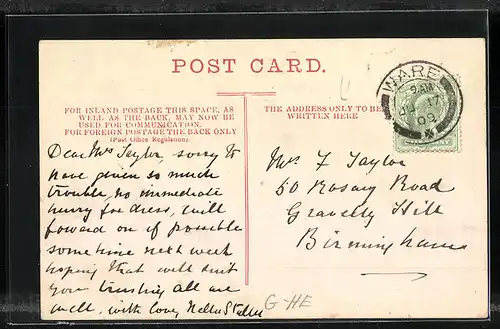 POST CARD.
FOR INLAND POSTAGE THIS SPACE, AS
WELL AS THE BACK, MAY NOW BE
USED FOR COMMUNICATION.
FOR FOREIGN POSTAGE THE BACK ONLY
(Post Office Regulation).
THE ADDRESS ONLY TO BE
WRITTEN HERE
WARE
9 AM
17
09
Dear Mrs Taylor, sorry to
have given so much
trouble, no immediate
hurry for dress, will
foward on if possible
some time next week
hoping that will suit
you trusting all are
well, with love,
Mrs F Taylor
50 Rosary Road
Gravelly Hill
Birmingham
G-HE